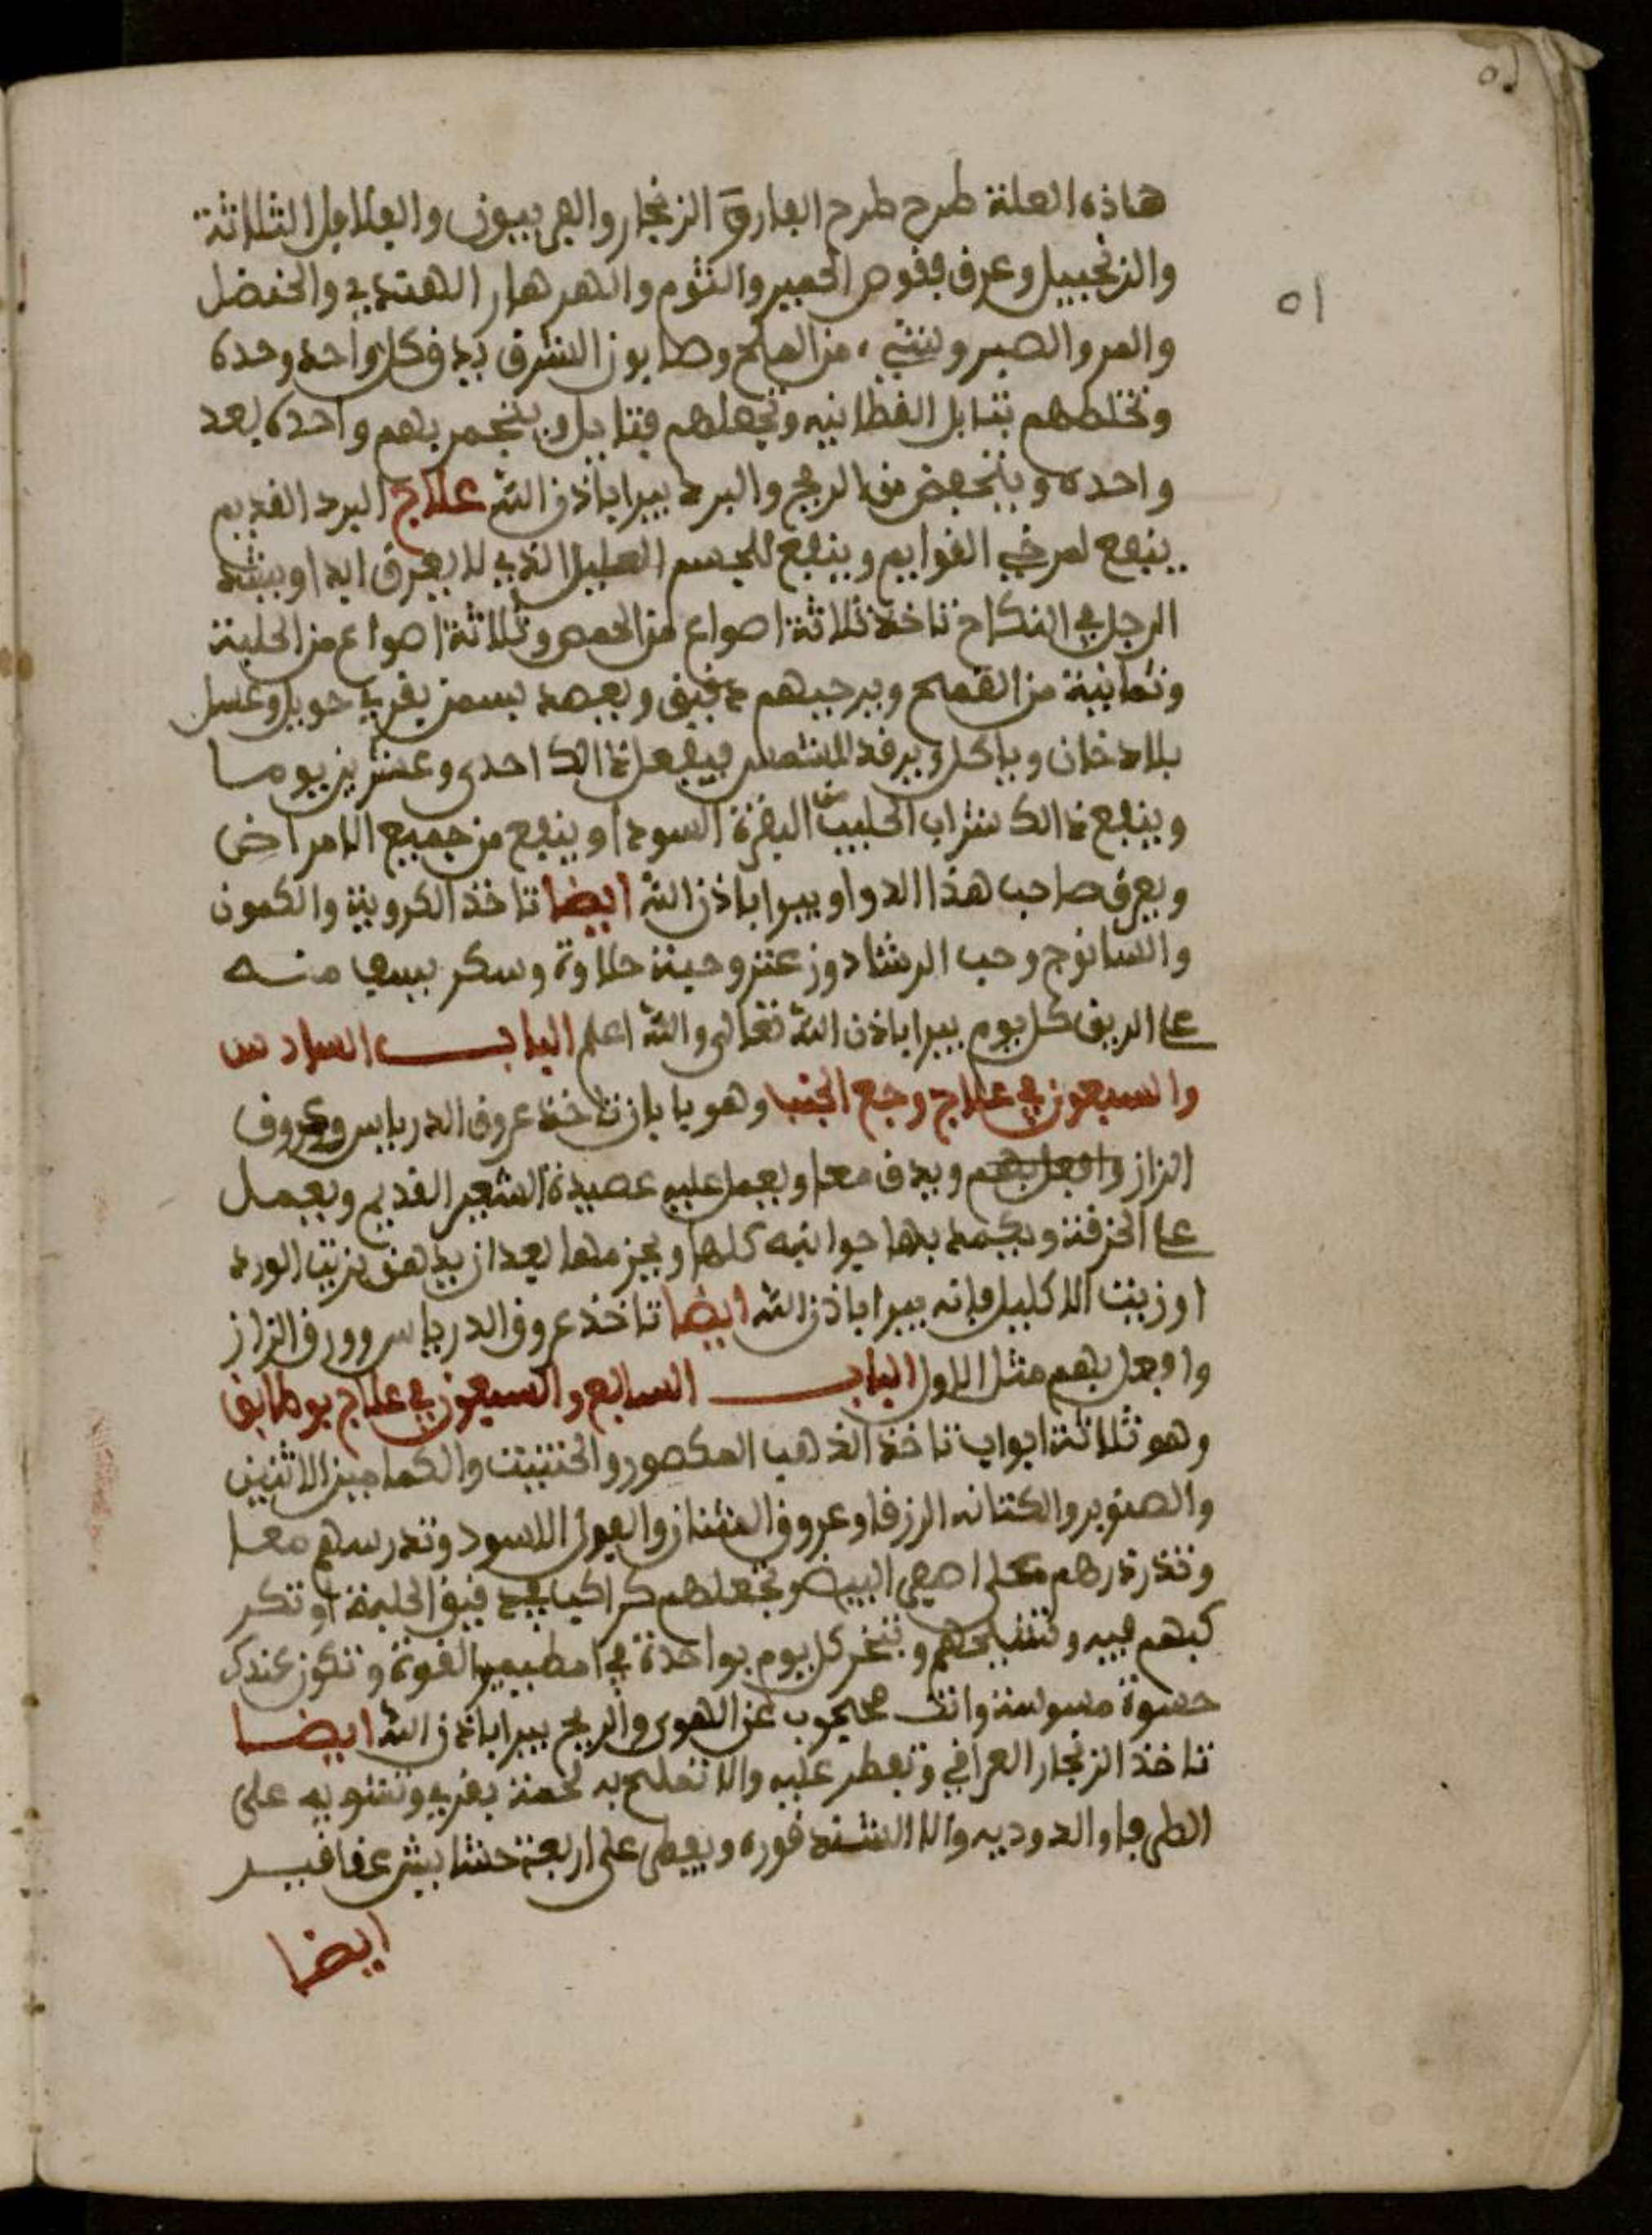 هاذه العلة طرح طرح الفارق الزنجار والفربيون والفلافل الثلاثة
والزنجبيل وعرق فقوص الحمير والثوم والهرهار الهندي والحنضل
والمر والصبر وشيء من الملح وصابون الشرق يدق كل واحد وحده
وتخلطهم بتابل القطانيه وتجعلهم فتايل ويتخمر بهم واحدة بعد
واحده ويتحفض من الريح والبرد يبرا باذن الله علاج البرد القديم
ينفع لمرخي القوايم وينفع للجسم العليل الذي لا يعرق ابدا ويشد
الرجل في النكاح تاخذ ثلاثة اصواع من الحمص وثلاثة اصواع من الحلبة
وثمانية من القمح ويرحيهم دقيق ويعصد بسمن بقري حويل وعسل
بلا دخان وياكل ويرقد للشمس يفعل ذالك احدى وعشرين يوما
وينفع ذالك شراب الحليب من البقرة السودا وينفع من جميع الامراض
ويعرق صاحب هذا الدوا ويبرا باذن الله ايضا تاخذ الكروية والكمون
والسانوج وحب الرشاد وزعتر وحبة حلاوة وسكر يسف منه
على الريق كل يوم يبرا باذن الله تعالى والله اعلم الباب السادس
والسبعون في علاج وجع الجنب وهو يا بان تاخذ عروق الدرياس وعروق
الزاز وافعل بهم ويدق معا ويعمل عليه عصيدة الشعير القديم ويعمل
على الخرقة ويكمد بها جوانبه كلها ويحزمها بعد ان يدهن بزيت الورد
او زيت الاكليل فإنه يبرا باذن الله ايضا تاخذ عروق الدرياس وورق الزاز
وافعل بهم مثل الاول الباب السابع والسبعون في علاج بوطابق
وهو ثلاثة ابواب تاخذ الذهب المكصور والحنتيت والكمامين الاثنين
والصنوبر والكتانه الزرقا وعروق الفتنان والفول الاسود وتدرسهم معا
وتذردرهم على اصفى البيض وتجعلهم كراكيب في دقيق الحلبة او تكر
كبهم فيه وتشيحهم وتبخر كل يوم بواحدة في امطيمير القوة وتكون عندك
حسوة مسوسة وانت محجوب عن الهوى والريح يبرا باذن الله ايضا
تاخذ الزنجار العراقي وتفطر عليه والا تملح به لحمة بقري وتشويه على
الطرفا والدوديه والا السدقوره ويفطر على اربعة حشايش عقاقير
ايضا